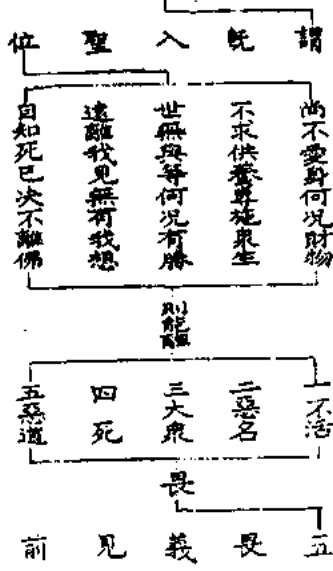 謂旣入聖位
尚不愛身何况財物
不求供養專施衆生
世無與等何况有勝
遠離我見無有我想
自知死已决不離佛
則能離
一不活
二惡名
三大衆
四死
五惡道
畏
五畏義見前